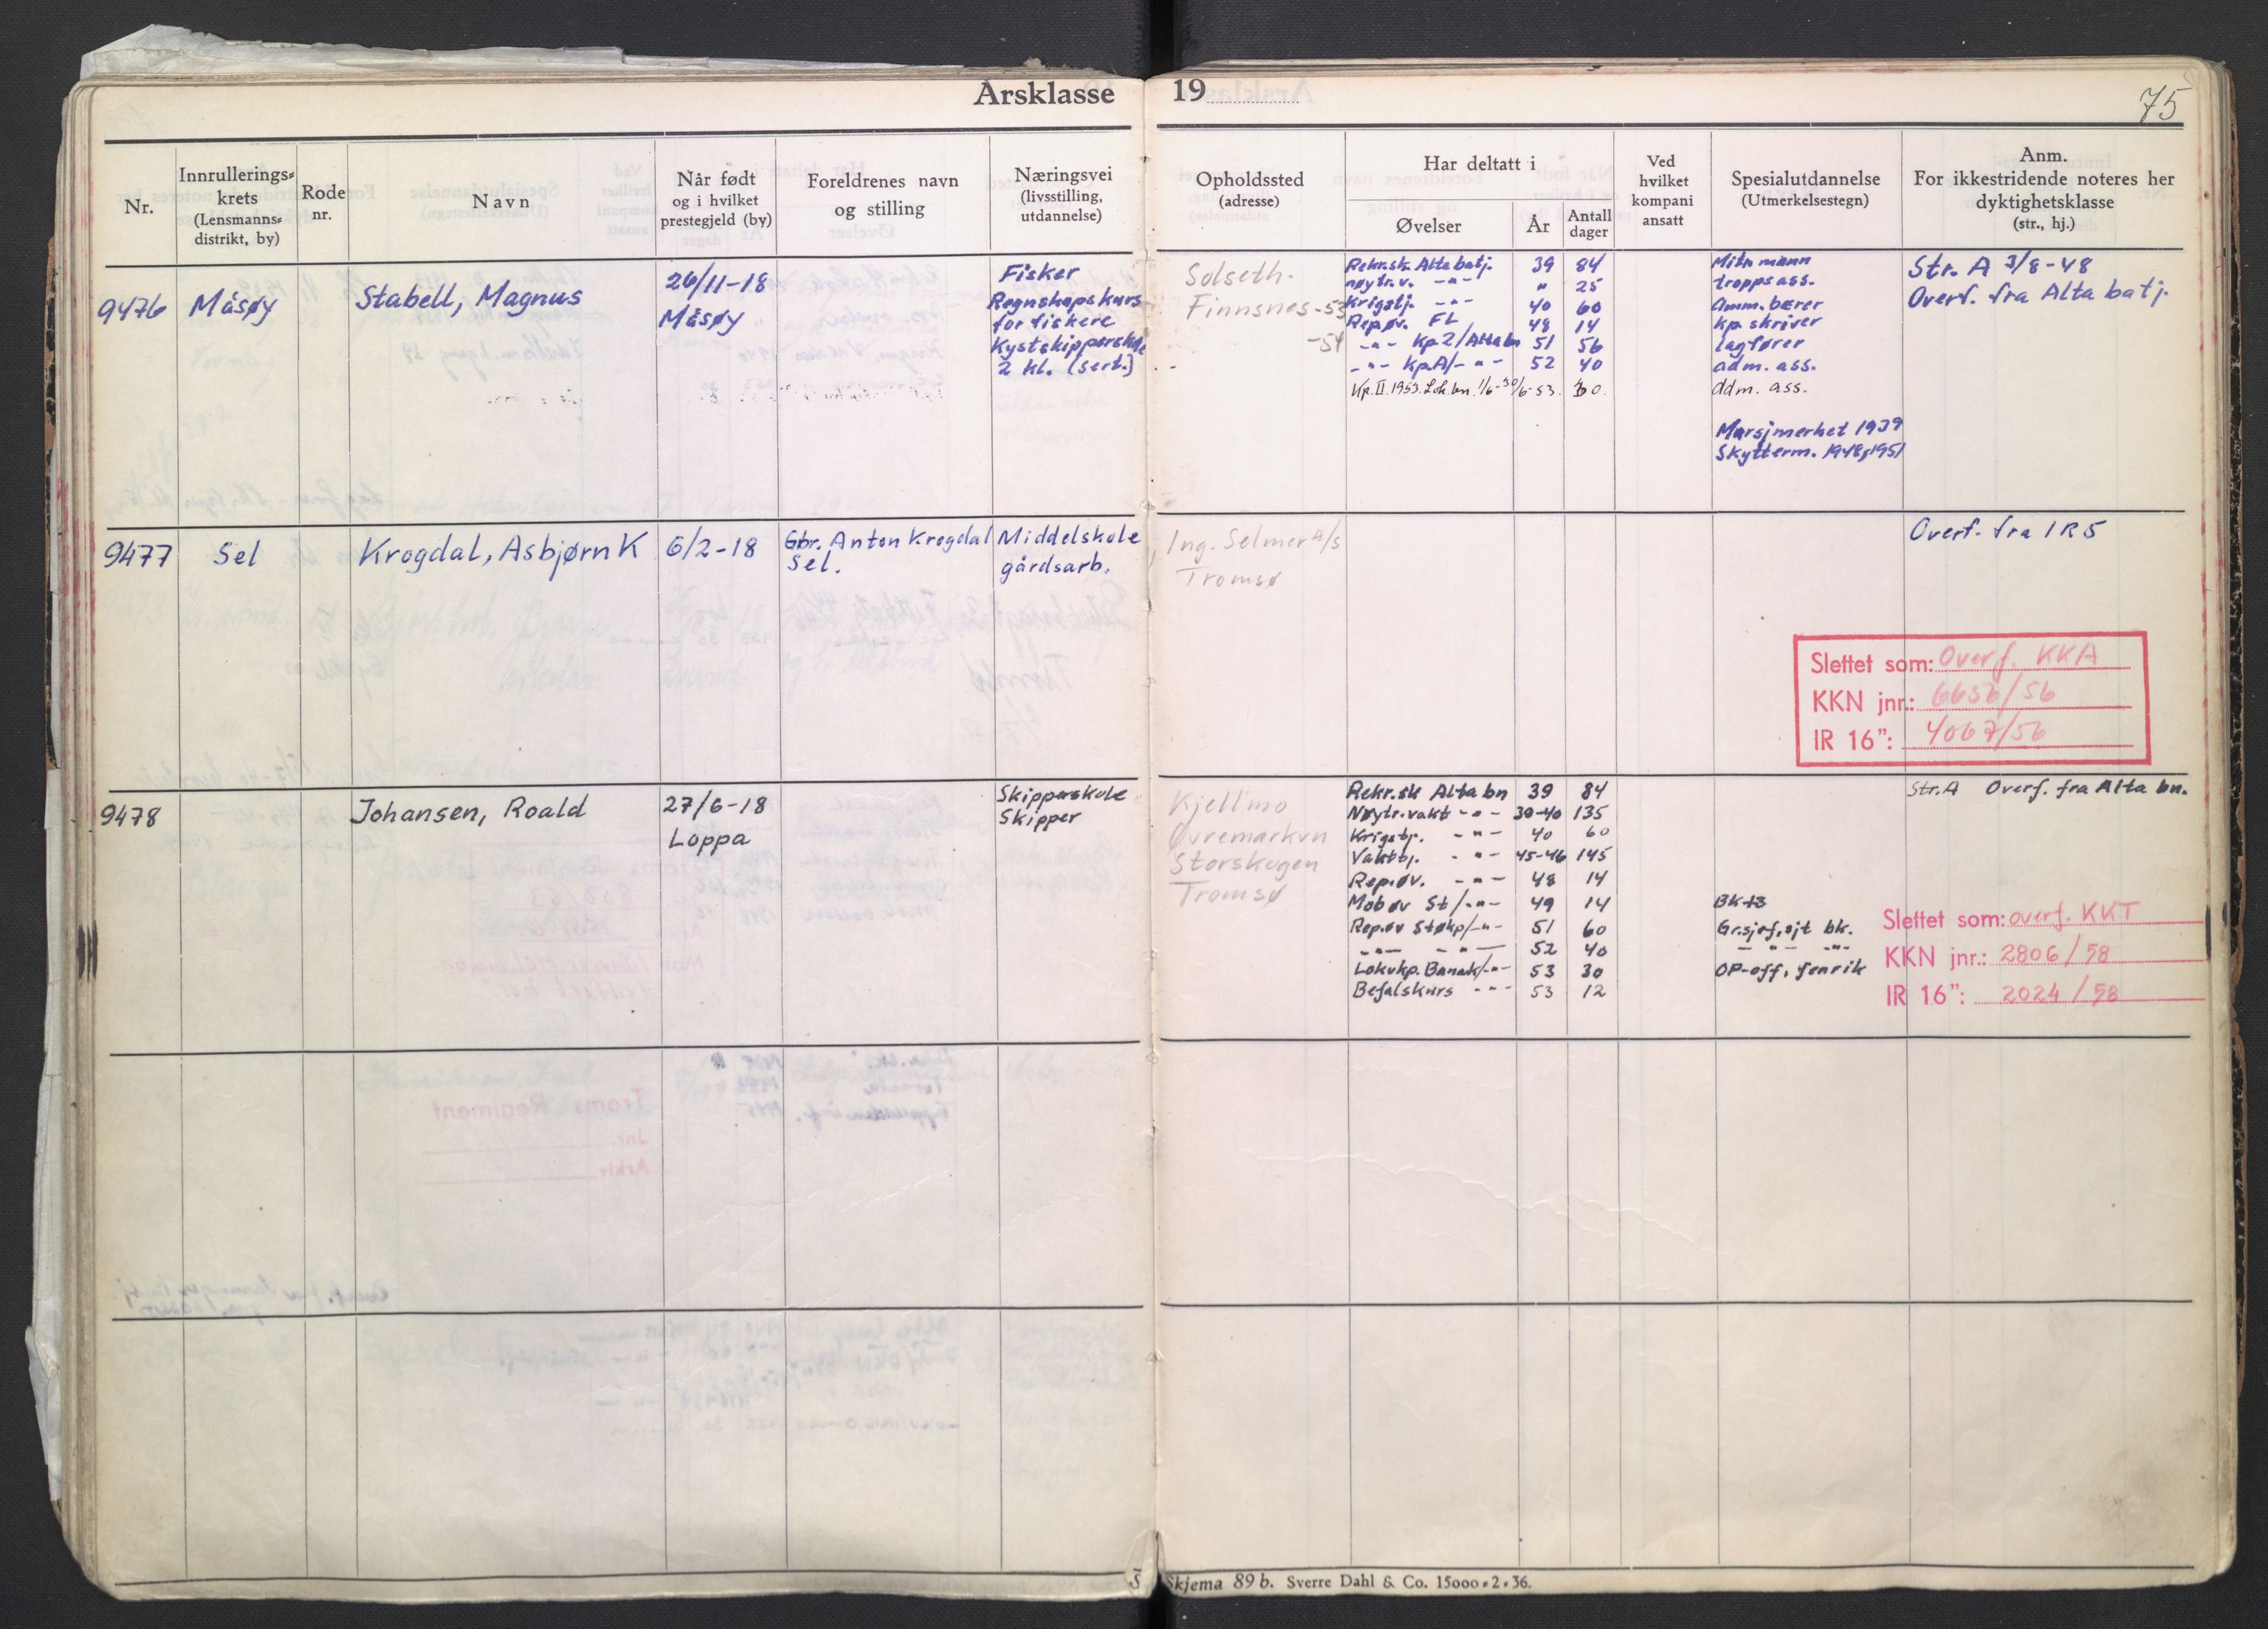 Årsklasse 19
75
Nr.
Innrullerings-
krets
(Lensmanns-
distrikt, by)
Rode
nr.
Navn
Når født
og i hvilket
prestegjeld (by)
Foreldrenes navn
og stilling
Næringsvei
(livsstilling,
utdannelse)
Opholdssted
(adresse)
Har deltatt i
Øvelser
År
Antall
dager
Ved
hvilket
kompani
ansatt
Spesialutdannelse
(Utmerkelsestegn)
Anm.
For ikkestridende noteres her
dyktighetsklasse
(str., hj.)
9476
Måsøy
Stabell, Magnus
26/11-18
Måsøy
Fisker
Regnskapskurs
for fiskere
Kystskipperskole
2 kl. (sert.)
Solseth.
Finnsnes -53
-54
Rekr.sk. Alta batj. 39 84
nøytr.v. -"- " 25
Krigstj. -"- 40 60
Rep.øv. FL 48 14
-"- Kp 2/Alta bn 51 56
-"- Kp A/-"- 52 40
Kp. II. 1953. Lok.bn. 1/6-30/6-53. 30.
Mitr mann
troppsass.
Amm. bærer
kp. skriver
lagfører
adm. ass.
adm. ass.
Marsjmerket 1939
Skytterm. 1948, 1951
Str. A 3/8-48
Overf. fra Alta batj.
9477
Sel
Krogdal, Asbjørn K
6/2-18
Gbr. Anton Krogdal
Sel.
Middelskole
gårdsarb.
Ing. Selmer A/s
Tromsø
Overf. fra IR5
Slettet som: Overf. KKA
KKN jnr.: 6656/56
IR 16": 4067/56
9478
Johansen, Roald
27/6-18
Loppa
Skipperskole
Skipper
Kjellmo
Øvremarkvn
Storskogen
Tromsø
Rekr.sk Alta bn 39 84
Nøytr.vakt -"- 39-40 135
Krigstj. -"- 40 60
Vakttj. -"- 45-46 145
Rep.øv. -"- 48 14
Mob øv St/-"- 49 14
Rep.øv Støkp/-"- 51 60
-"- -"- 52 40
Lokvkp. Banak/-"- 53 30
Befalskurs -"- 53 12
BK+3
Gr.sjef, sjt bk.
-"- -"- -"-
OP-off, fenrik
Str. A Overf. fra Alta bn.
Slettet som: overf. KKT
KKN jnr.: 2806/58
IR 16": 2024/58
5
Skjema 89 b. Sverre Dahl & Co. 15000-2-36.